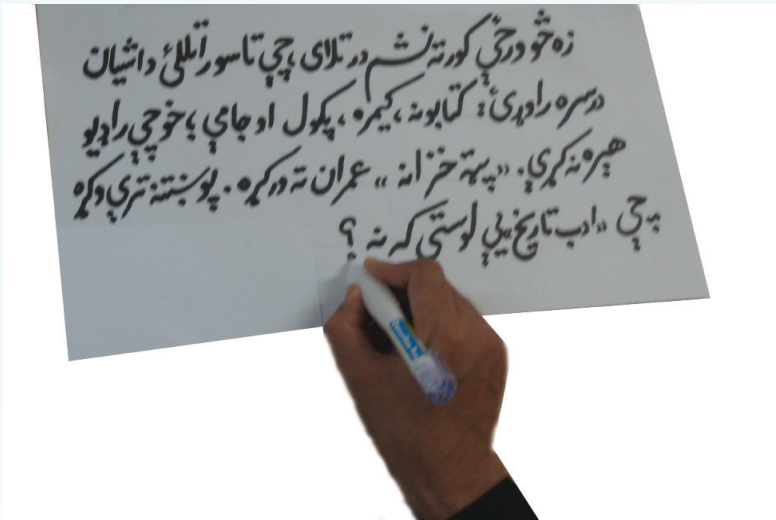 زه څو ورځې کورته نشم درتلای ،چې تاسو راتللئ دا شیان
درسره راوړئ: کتابونه ،کیمره ،پکول او جامې ؛ خو چې راډیو
هېره نه کړې. «پټه خزانه» عمران ته ورکړه. پوښتنه ترې وکړه
چې «ادب تاریخ» یې لوستی که نه ؟